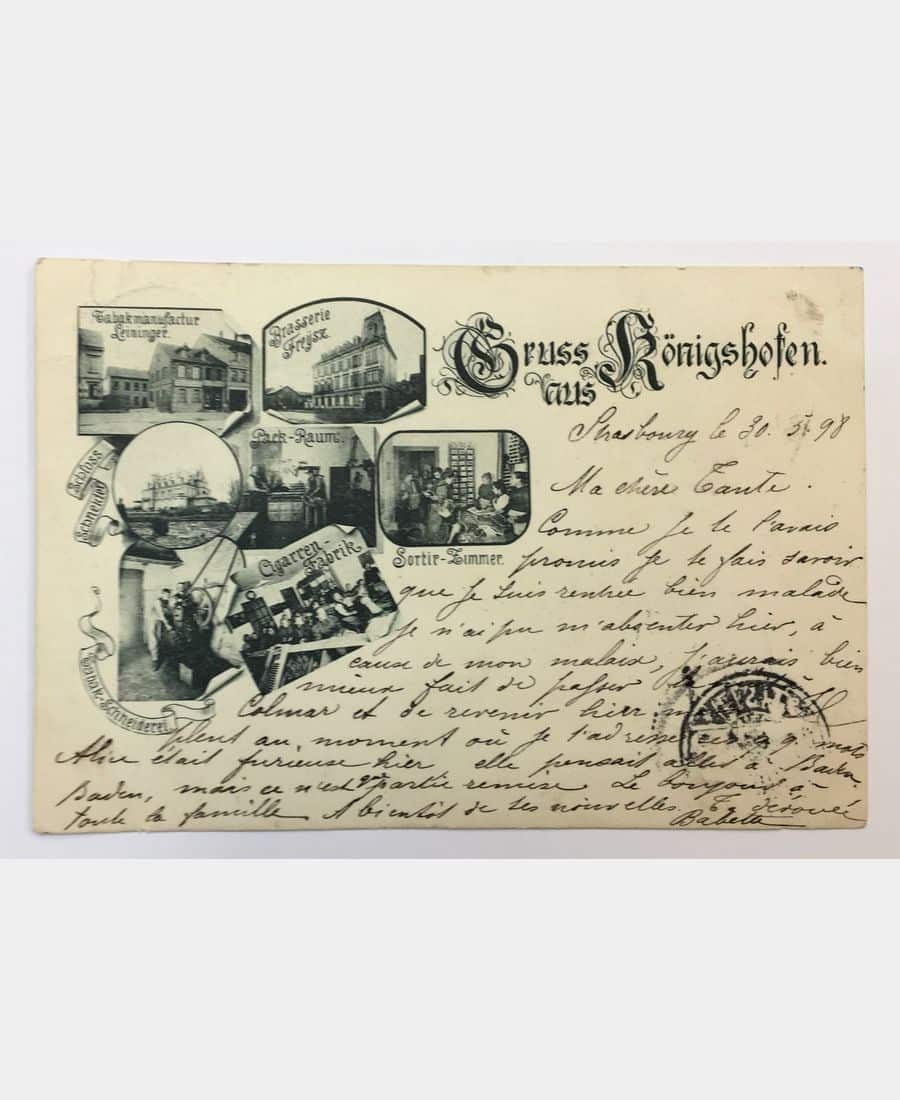 Tabakmanufactur
Leininger.
Brasserie
Freysz
Gruss
aus
Königshofen.
Schloss
Schnekig
Pack-Raum.
Sortir-Zimmer.
Cigarren-
Fabrik
Tabak-Schneiderei
Strasbourg le 30. 5. 98
Ma chère Tante.
Comme je te l'avais
promis je te fais savoir
que je suis rentrée bien malade
je n'ai pu m'absenter hier, à
cause de mon malaise, j'aurais bien
mieux fait de passer
Colmar et de revenir hier Il
pleut au moment où je t'adresse ces mots
Alice était furieuse hier elle pensait aller à Baden
Baden, mais ce n'est que partie remise. Le bonjour à
toute la famille A bientôt de tes nouvelles. Ta dévouée
Babette